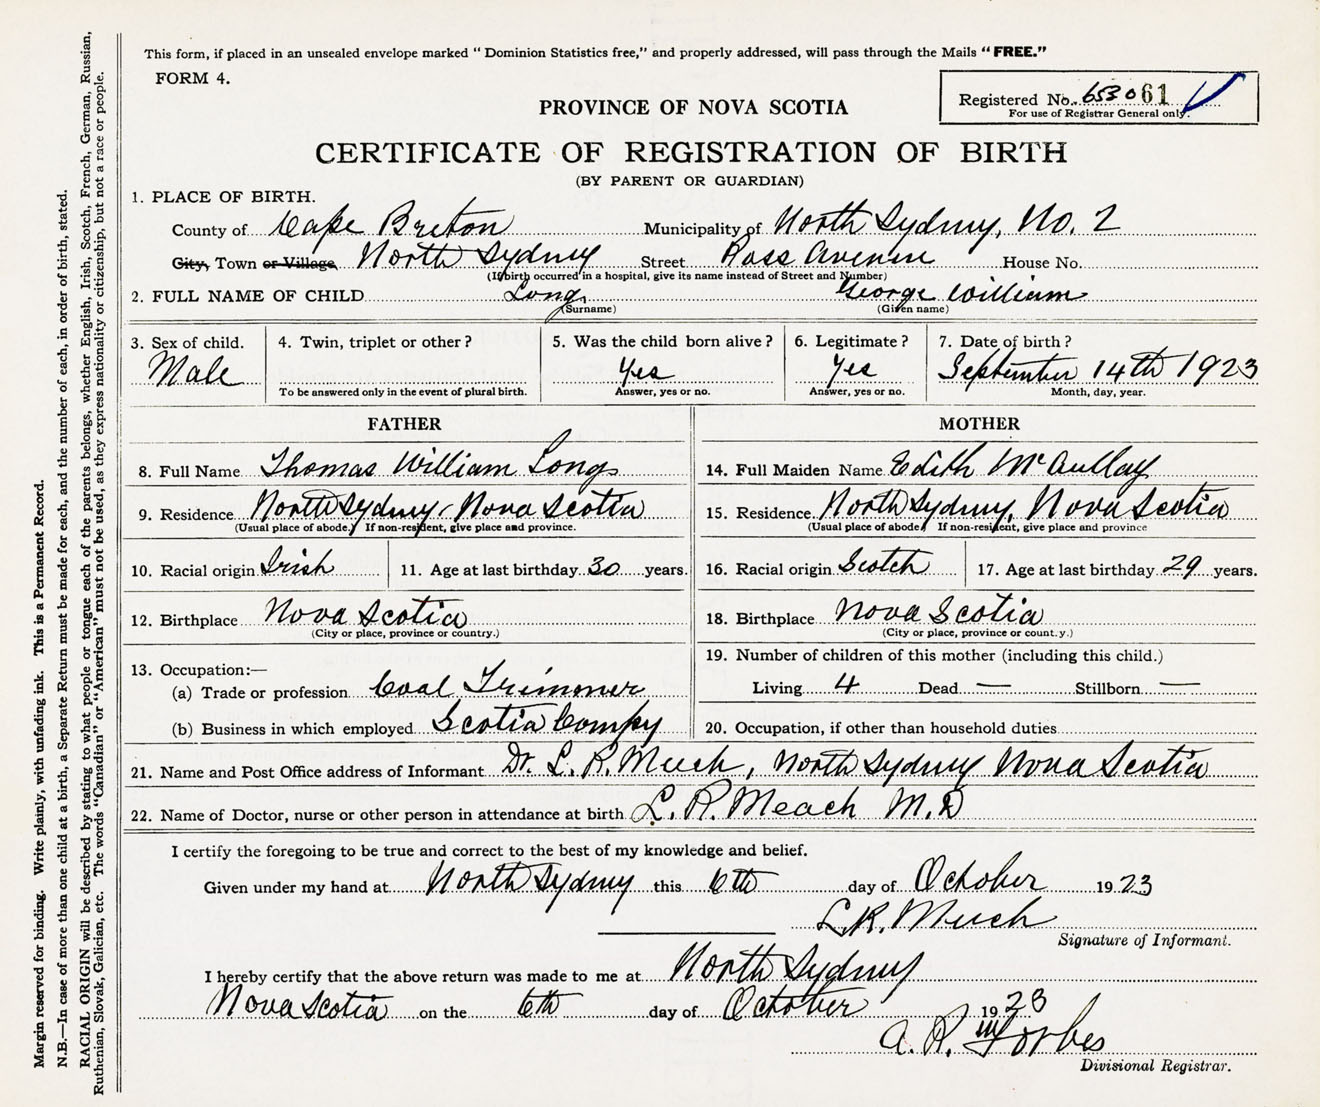 This form, if placed in an unsealed envelope marked "Dominion Statistics free," and properly addressed, will pass through the Mails "FREE."
FORM 4.
Registered No. 653061
For use of Registrar General only.
PROVINCE OF NOVA SCOTIA
CERTIFICATE OF REGISTRATION OF BIRTH
(BY PARENT OR GUARDIAN)
1. PLACE OF BIRTH.
County of Cape Breton Municipality of North Sydney, No. 2
City, Town or Village North Sydney Street Ross Avenue House No.
(If birth occurred in a hospital, give its name instead of Street and Number)
2. FULL NAME OF CHILD Long George William
(Surname) (Given name)
3. Sex of child. 4. Twin, triplet or other? 5. Was the child born alive? 6. Legitimate? 7. Date of birth?
Male Yes Yes September 14th 1923
To be answered only in the event of plural birth. Answer, yes or no. Answer, yes or no. Month, day, year.
FATHER MOTHER
8. Full Name Thomas William Long 14. Full Maiden Name Edith McAullay
9. Residence North Sydney, Nova Scotia 15. Residence North Sydney, Nova Scotia
(Usual place of abode.) If non-resident, give place and province. (Usual place of abode) If non-resident, give place and province
10. Racial origin Irish 11. Age at last birthday 30 years. 16. Racial origin Scotch 17. Age at last birthday 29 years.
12. Birthplace Nova Scotia 18. Birthplace Nova Scotia
(City or place, province or country.) (City or place, province or count.y.)
13. Occupation:— 19. Number of children of this mother (including this child.)
(a) Trade or profession Coal Trimmer Living 4 Dead — Stillborn —
(b) Business in which employed Scotia Compy 20. Occupation, if other than household duties
21. Name and Post Office address of Informant Dr. L. R. Meech, North Sydney Nova Scotia
22. Name of Doctor, nurse or other person in attendance at birth L. R. Meach M.D
I certify the foregoing to be true and correct to the best of my knowledge and belief.
Given under my hand at North Sydney this 6th day of October 1923
L.R. Meech
Signature of Informant.
I hereby certify that the above return was made to me at North Sydney
Nova Scotia on the 6th day of October 1923
A. R. Forbes
Divisional Registrar.
Margin reserved for binding. Write plainly, with unfading ink. This is a Permanent Record.
N.B.—In case of more than one child at a birth, a Separate Return must be made for each, and the number of each, in order of birth, stated.
RACIAL ORIGIN will be described by stating to what people or tongue each of the parents belongs, whether English, Irish, Scotch, French, German, Russian,
Ruthenian, Slovak, Galician, etc. The words "Canadian" or "American" must not be used, as they express nationality or citizenship, but not a race or people.